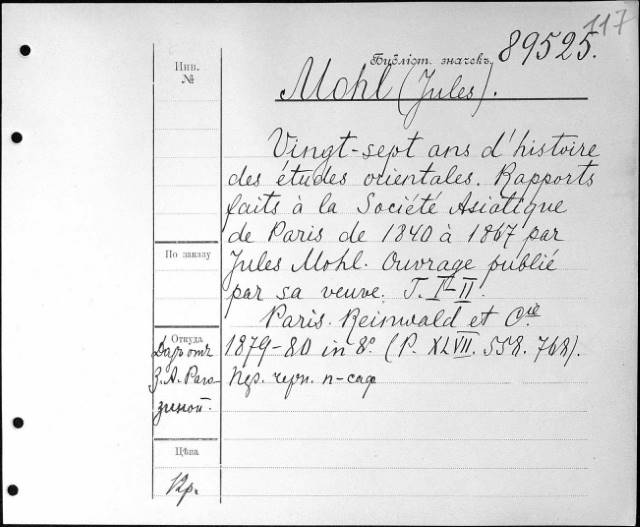 117
Библіот. значекъ 89525.
Инв.
№
Mohl (Jules).
Vingt-sept ans d'histoire
des études orientales. Rapports
faits à la Société Asiatique
de Paris de 1840 à 1867 par
Jules Mohl. Ouvrage publié
par sa veuve. T. I-II.
Paris. Reinwald et Cie
1879-80 in 8º. (P. XLVII. 558. 768).
По заказу
Откуда
Даръ отъ
З. А. Раго-
зиной.
Цѣна
12р.